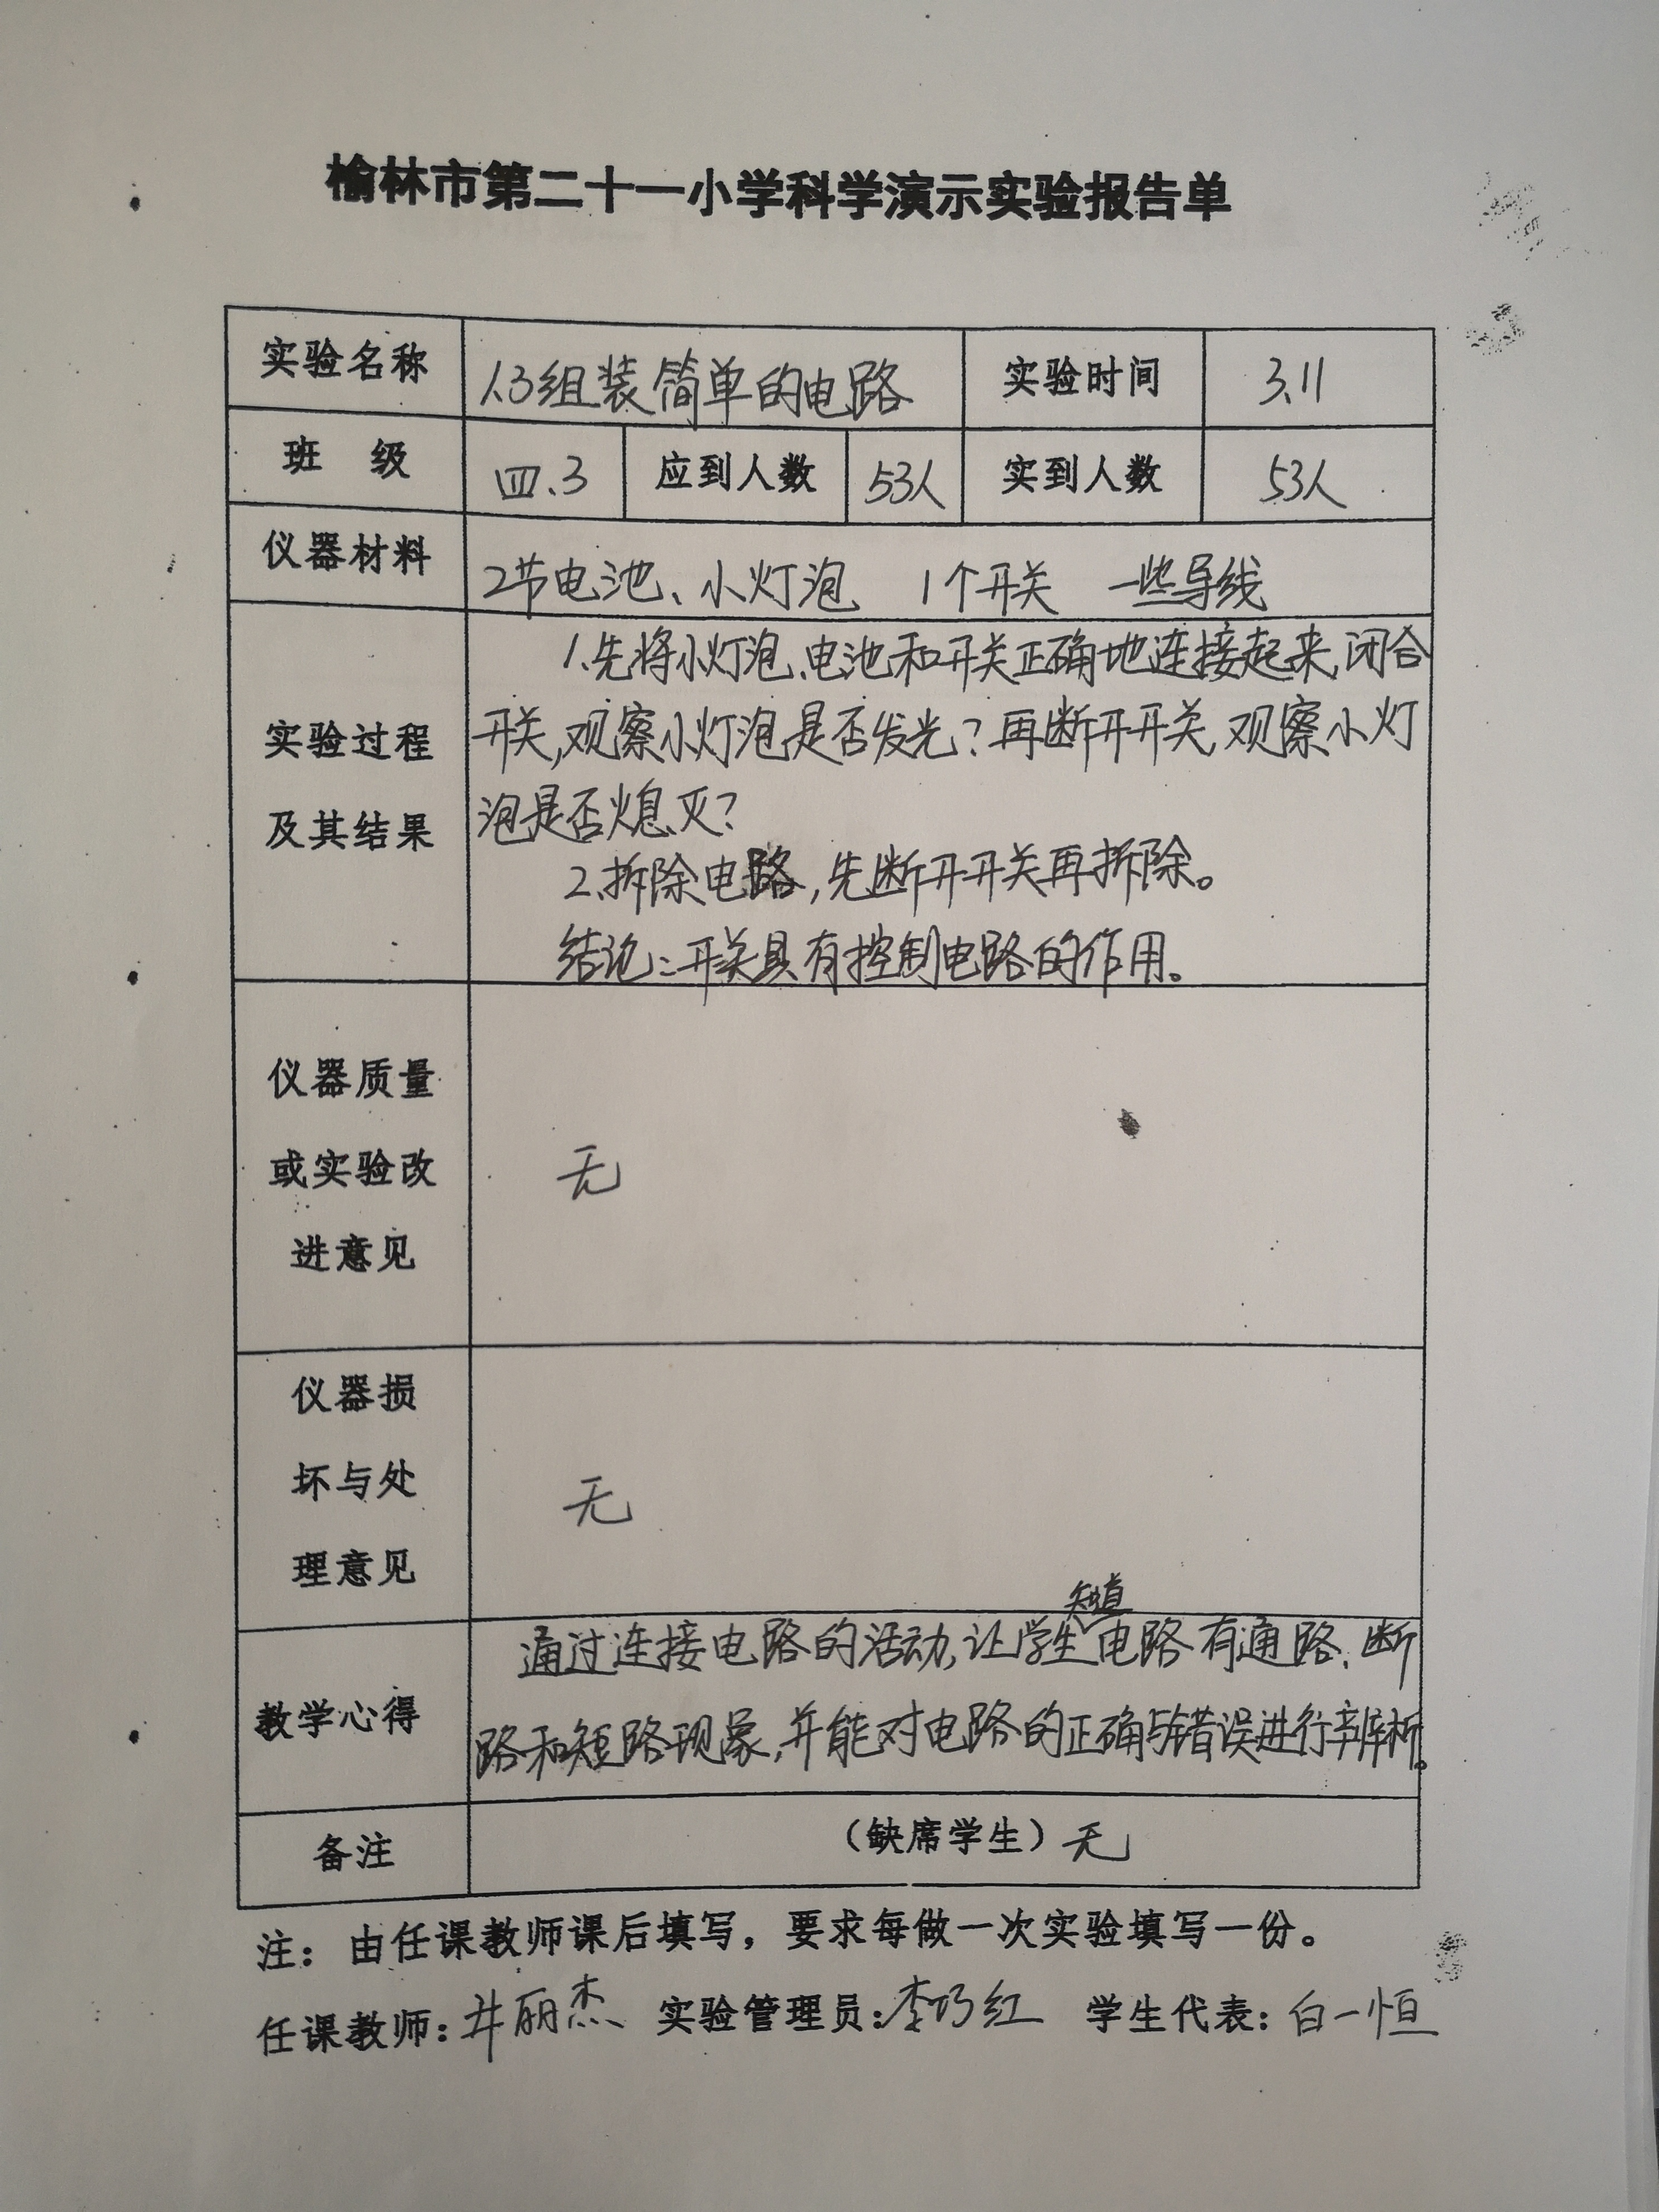 榆林市第二十一小学科学演示实验报告单
实验名称 1.3组装简单的电路 实验时间 3.11
班 级 四.3 应到人数 53人 实到人数 53人
仪器材料 2节电池、小灯泡 1个开关 一些导线
实验过程
及其结果
1.先将小灯泡、电池和开关正确地连接起来,闭合
开关,观察小灯泡是否发光?再断开开关,观察小灯
泡是否熄灭?
2.拆除电路,先断开开关再拆除。
结论:开关具有控制电路的作用。
仪器质量
或实验改
进意见
无
仪器损
坏与处
理意见
无
教学心得
通过连接电路的活动,让学生知道电路有通路、断
路和短路现象,并能对电路的正确与错误进行辨析。
备注 (缺席学生)无
注:由任课教师课后填写,要求每做一次实验填写一份。
任课教师:井丽杰 实验管理员:李巧红 学生代表:白一恒